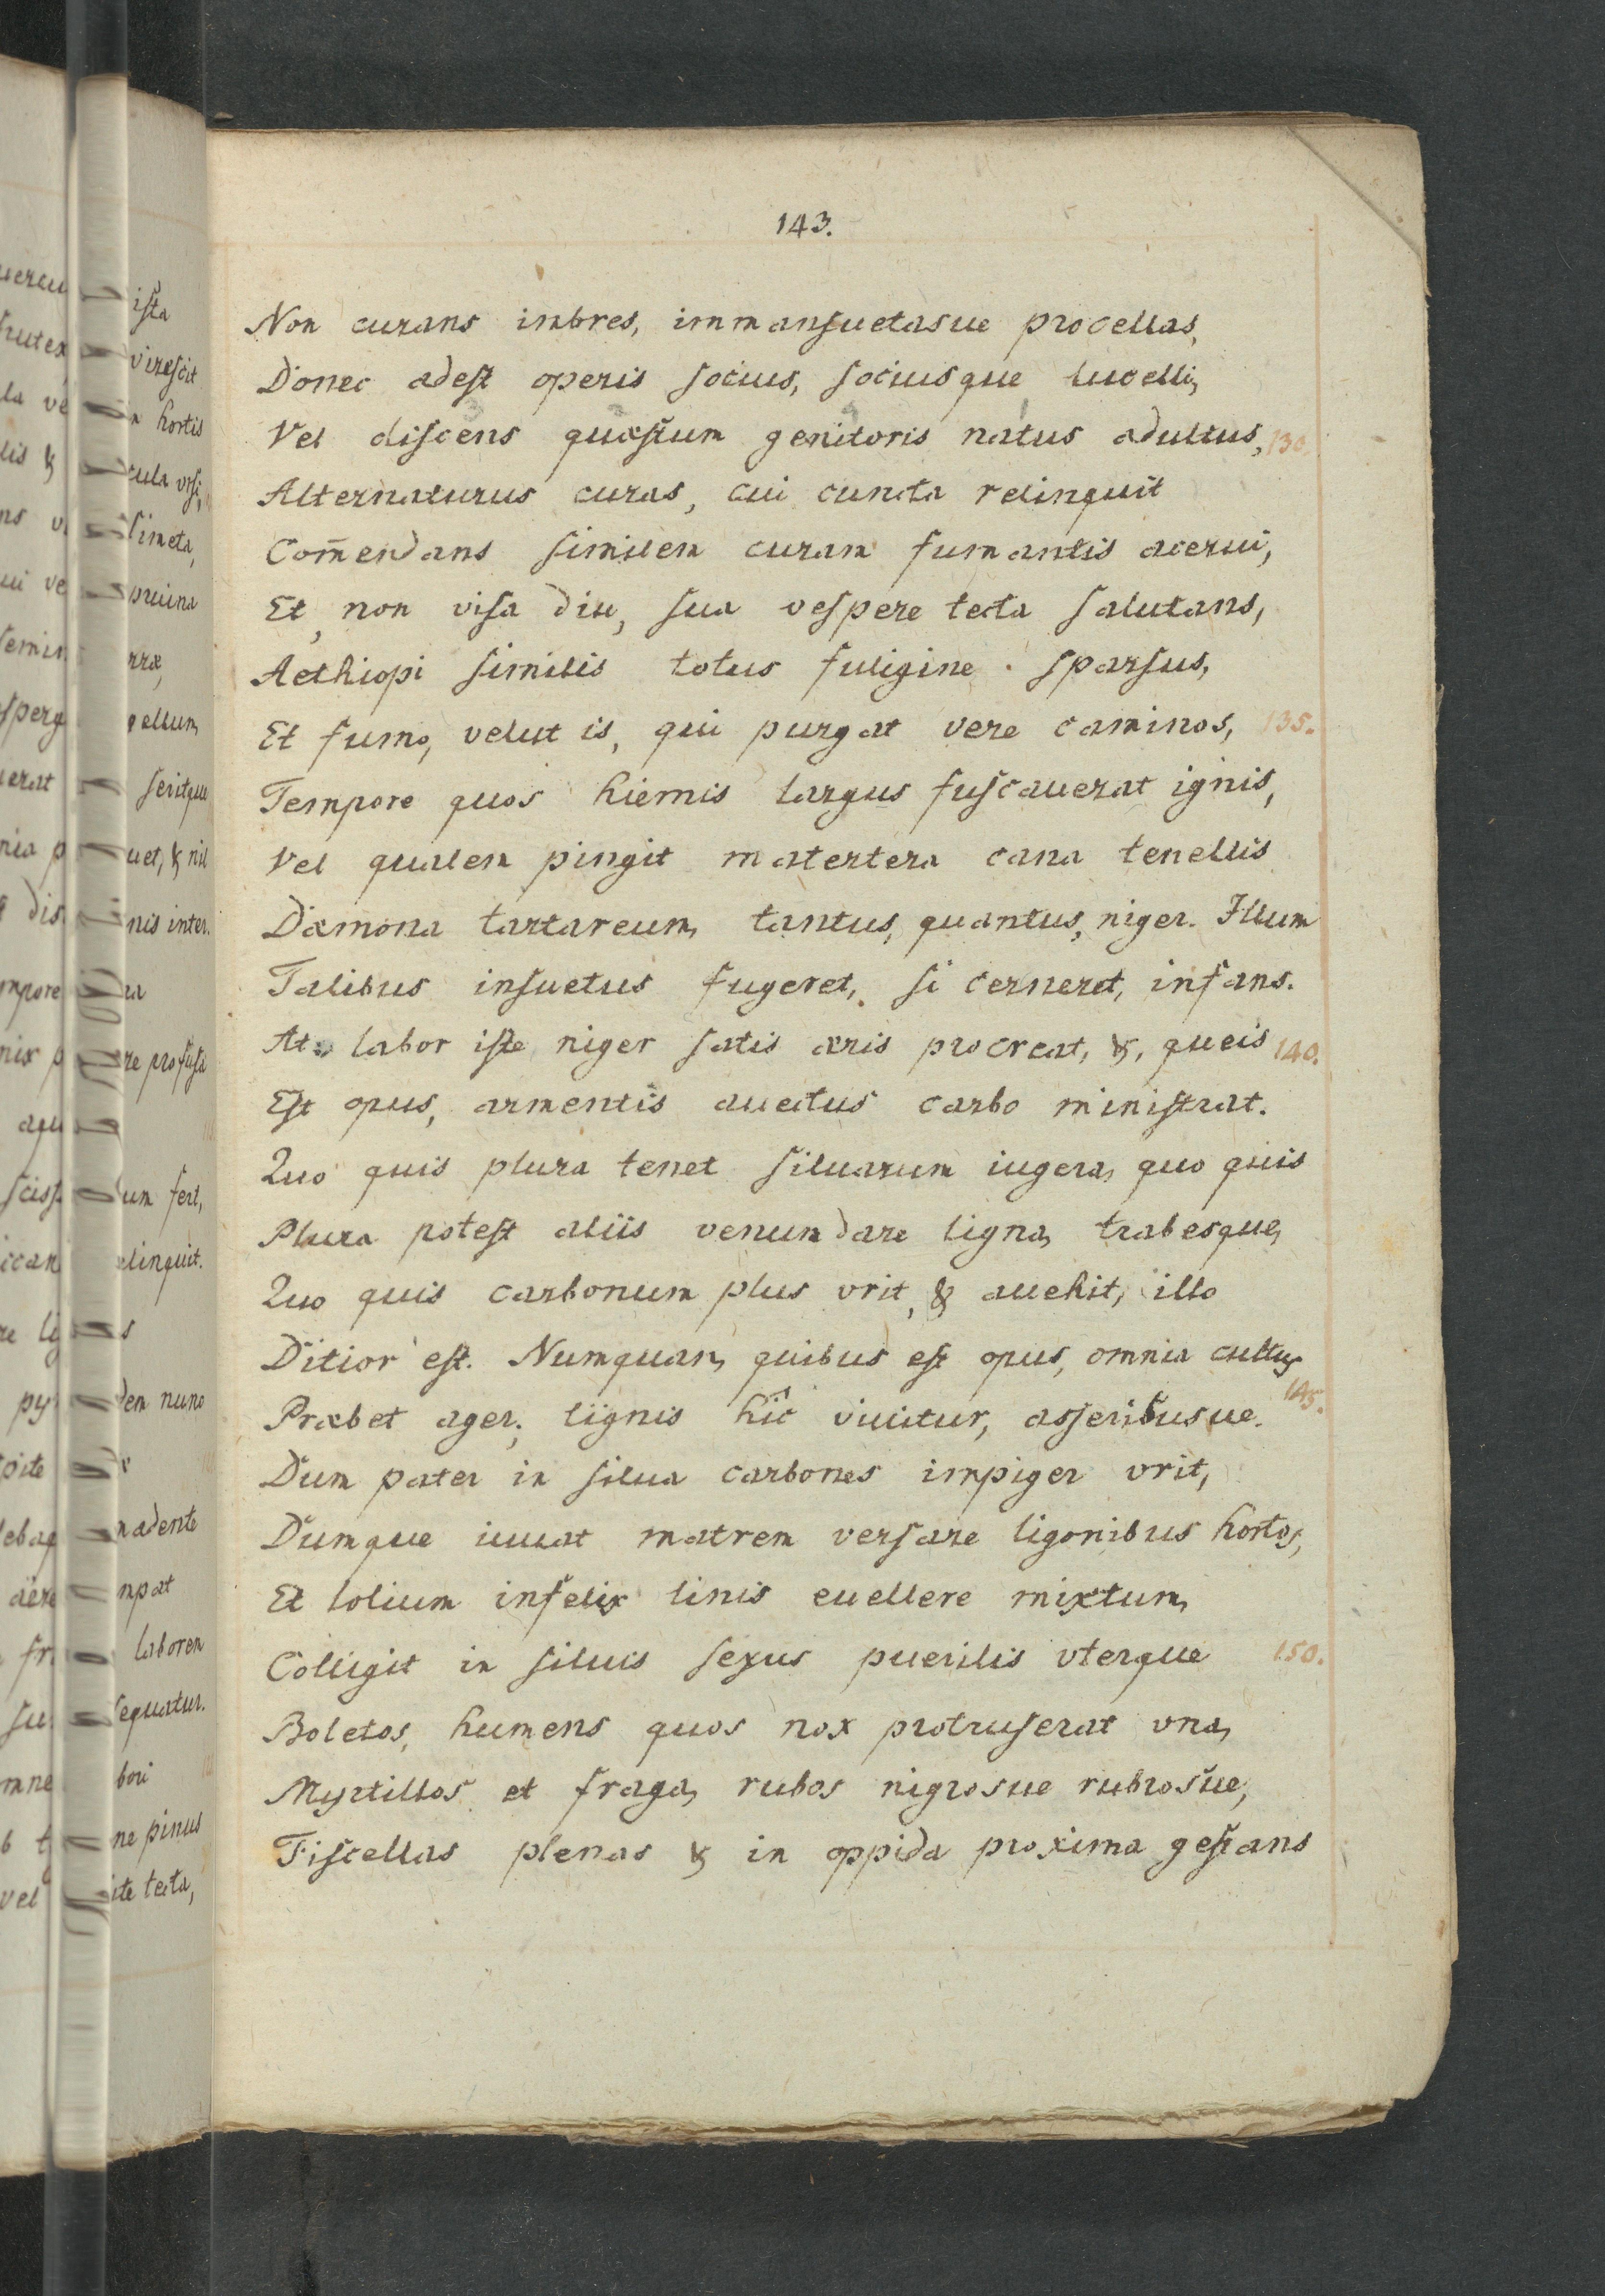 143.
Non curans imbres, immanſuetasue procellas,
Donec adeſt operis ſocius, ſociusque lucelli,
Vel diſcens quæſtum genitoris natus adultus, 130.
Alternaturus curas, cui cuncta relinquit
Com̄endans ſimilem curam fumantis acerui,
Et, non viſa diu, ſua veſpere tecta ſalutans,
Aethiopi ſimilis totus fuligine ſparſus,
Et fumo, velut is, qui purgat vere caminos, 135.
Tempore quos hiemis largus fuſcauerat ignis,
Vel qualem pingit matertera cana tenellis
Dæmona tartareum, tantus, quantus, niger. Illum
Talibus inſuetus fugeret, ſi cerneret, infans.
At labor iſte niger ſatis æris procreat, &, queis 140.
Eſt opus, armentis auectus carbo miniſtrat.
Quo quis plura tenet ſiluarum iugera, quo quis
Plura poteſt aliis venundare ligna, trabesque,
Quo quis carbonum plus vrit, & auehit, illo
Ditior eſt. Numquam, quibus eſt opus, omnia cultus
Præbet ager; lignis hîc viuitur, aſſeribusue. 145.
Dum pater in ſilua carbones impiger vrit,
Dumque iuuat matrem verſare ligonibus hortos,
Et lolium infelix linis euellere mixtum,
Colligit in ſiluis ſexus puerilis vterque 150.
Boletos, humens quos nox protruſerat vna,
Myrtillos et fraga, rubos nigrosue rubrosue,
Fiſcellas plenas & in oppida proxima geſtans